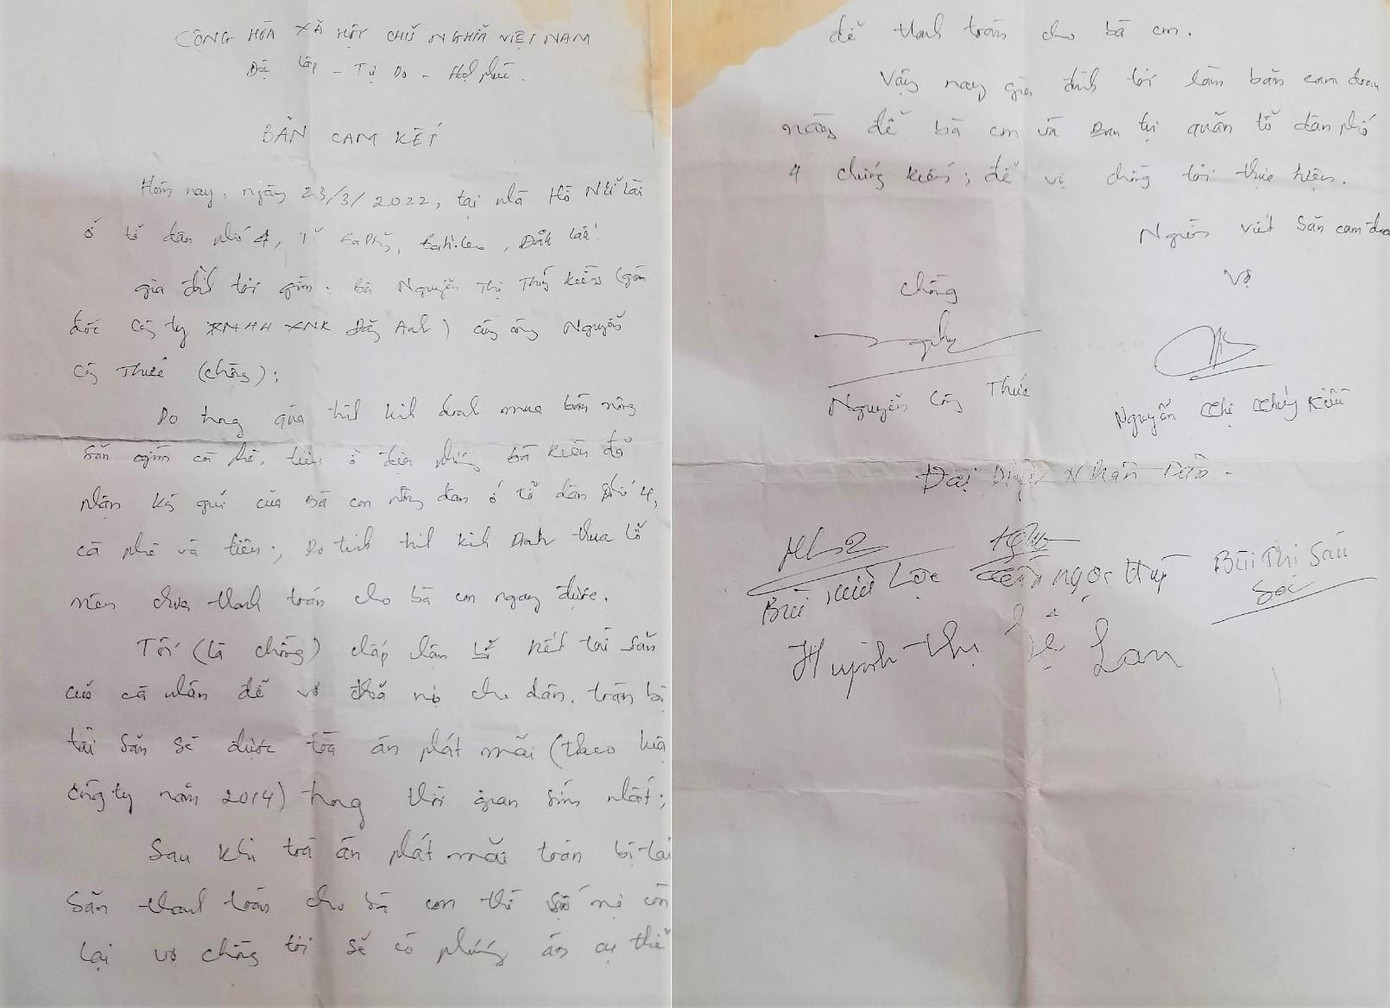 CỘNG HÒA XÃ HỘI CHỦ NGHĨA VIỆT NAM
Độc lập - Tự Do - Hạnh phúc.
BẢN CAM KẾT
Hôm nay, ngày 23/3/2022, tại nhà Hồ Nữ
ở tổ dân phố 4, EaHleo, Đắk Lắk
gia đình tôi gồm: Bà Nguyễn Thị Thúy Kiều (giám
đốc công ty TNHH XNK Đăng Anh) cùng ông Nguyễn
Công Thức (chồng);
Do trong quá trình kinh doanh mua bán nông
sản gồm cà phê, tiêu ở địa phương bà Kiều đã
nhận ký gửi của bà con nông dân ở tổ dân phố 4,
cà phê và tiêu; Do tình hình kinh doanh thua lỗ
nên chưa thanh toán cho bà con ngay được.
Tôi (là chồng) chấp nhận kết tài sản
của cá nhân để vợ trả nợ cho dân. toàn bộ
tài sản sẽ được toà án phát mãi (theo
công ty năm 2014) trong thời gian sớm nhất;
Sau khi toà án phát mãi toàn bộ tài
sản thanh toán cho bà con thì số nợ còn
lại vợ chồng tôi sẽ có phương án cụ thể
để thanh toán cho bà con.
Vậy nay gia đình tôi làm bản cam đoan
này để bà con và Ban tự quản tổ dân phố
4 chứng kiến; để vợ chồng tôi thực hiện.
Người viết bản cam đoan
Chồng
Vợ
Nguyễn Công Thức
Nguyễn Thị Thúy Kiều
Đại Diện Nhân Dân
Bùi Hữu Lộc
Ngọc
Bùi Thị Sáu
Sáu
Huỳnh Thị Lệ Lan